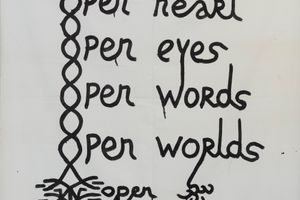 open heart
open eyes
open words
open worlds
open